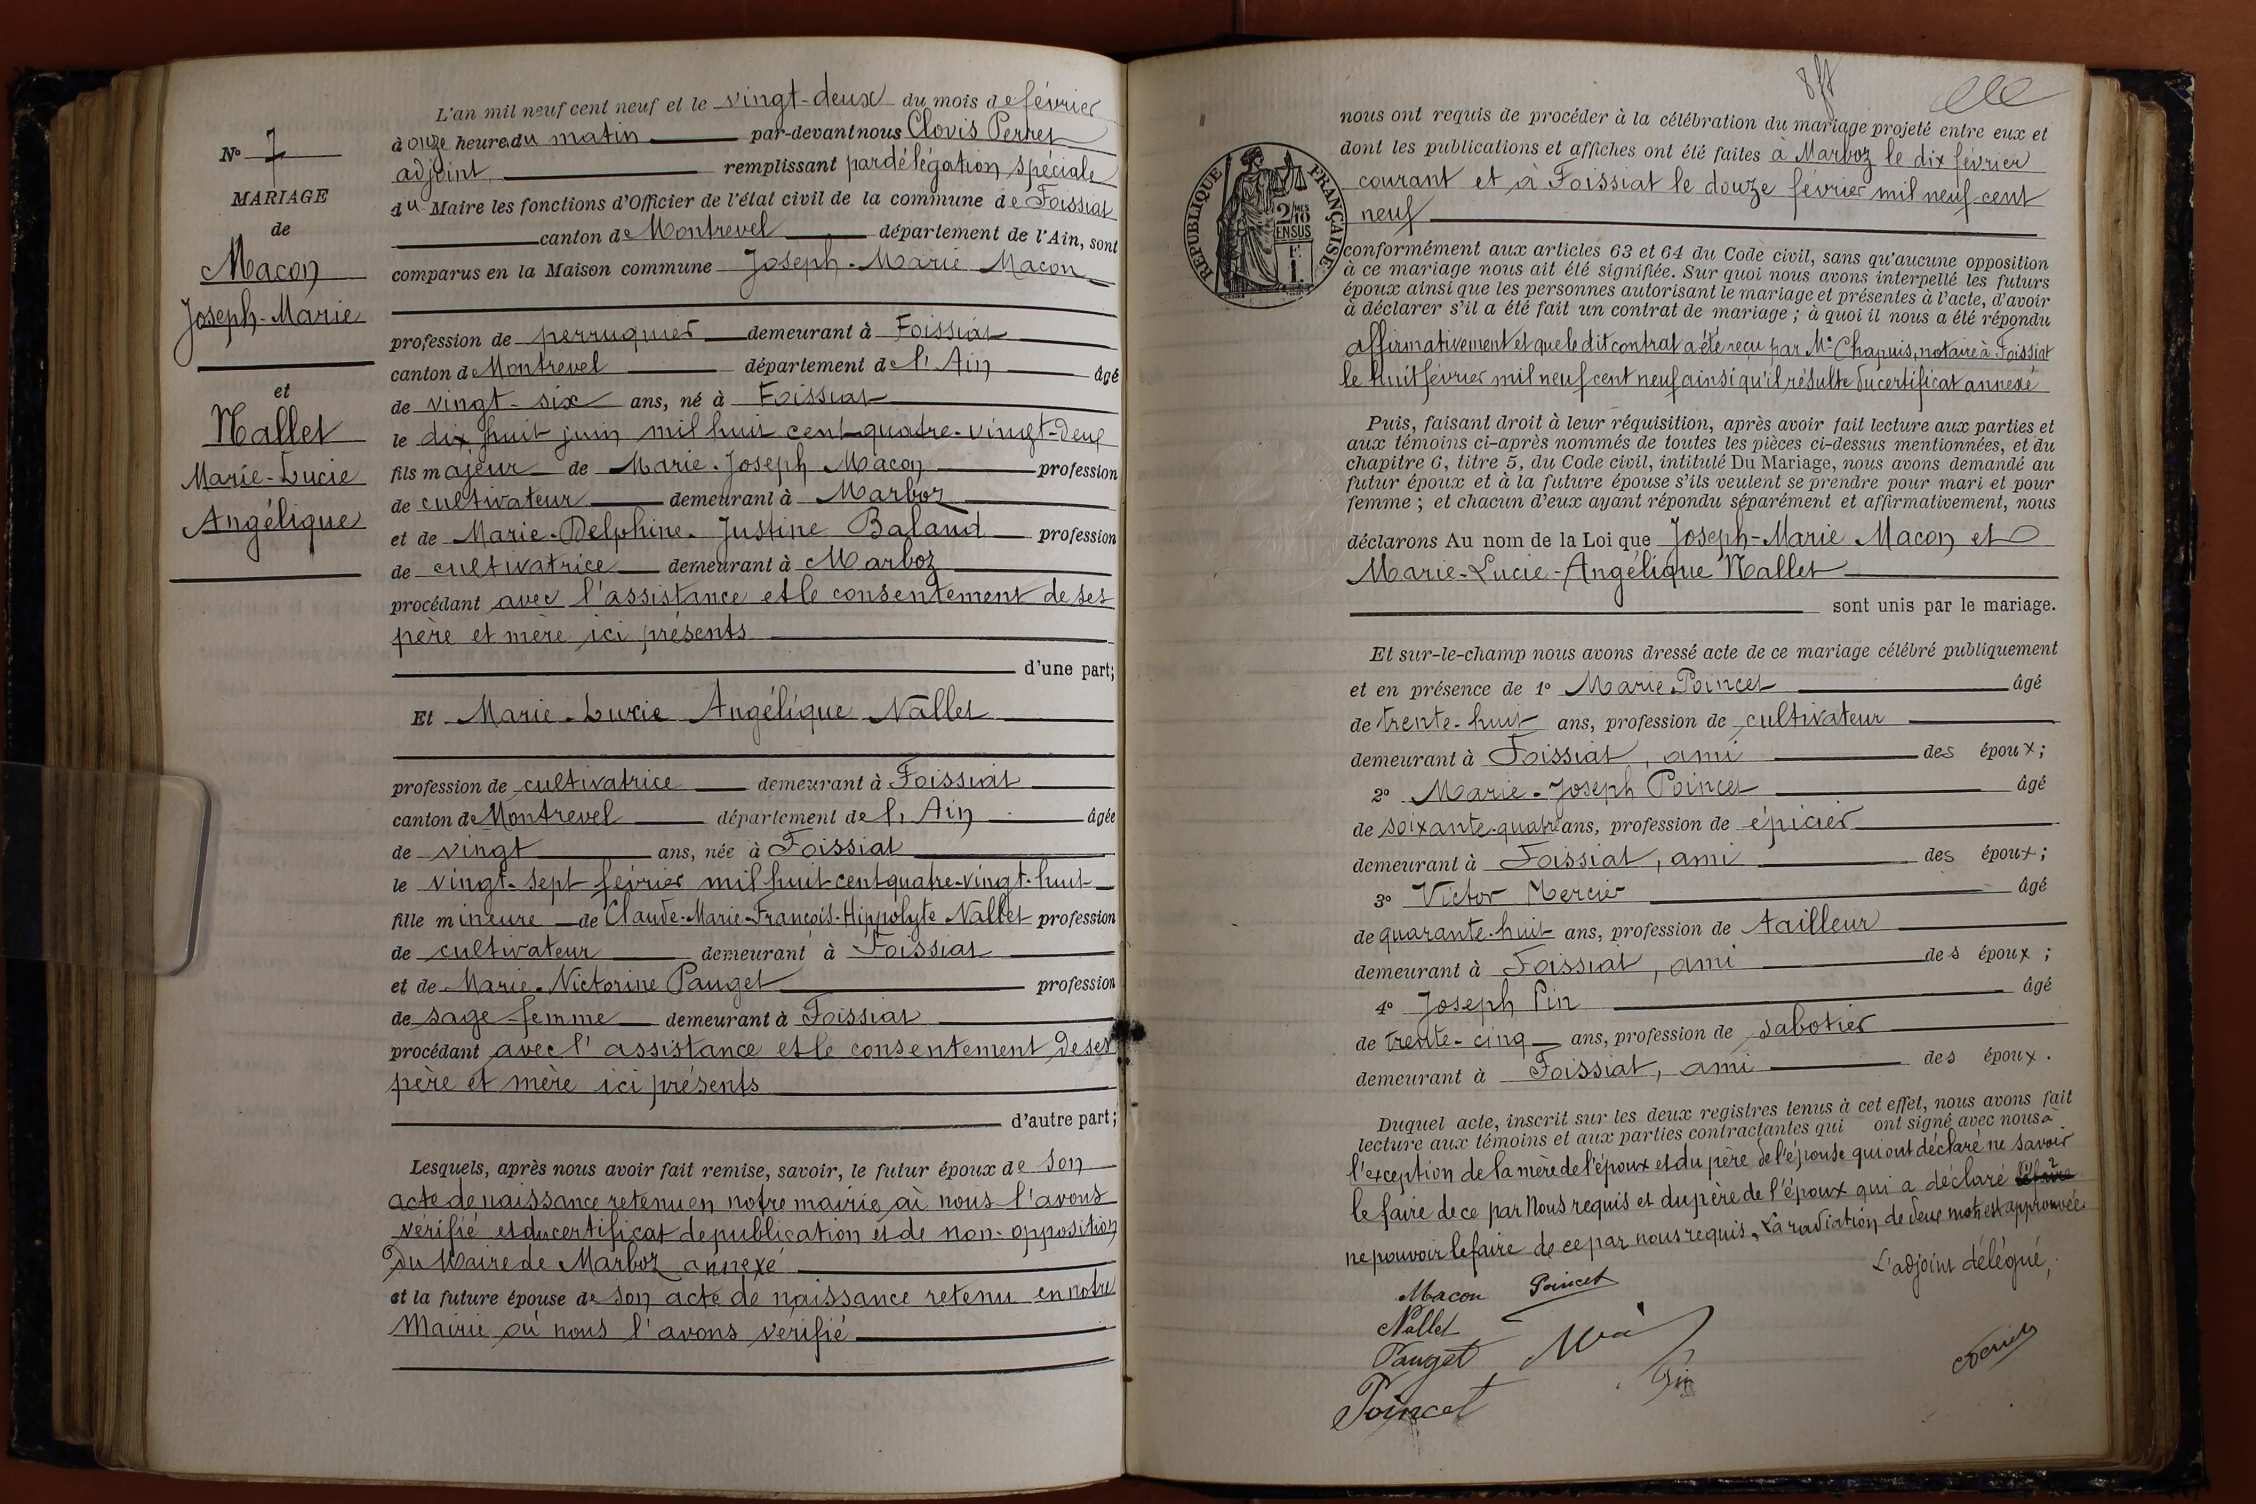 N° 7
MARIAGE
de
Macon
Joseph-Marie
et
Nallet
Marie-Lucie
Angélique
L'an mil neuf cent neuf et le vingt-deux du mois de février
à onze heures du matin par-devant nous Clovis Perret
adjoint remplissant par délégation spéciale
du Maire les fonctions d'Officier de l'état civil de la commune de Foissiat
canton de Montrevel département de l'Ain, sont
comparus en la Maison commune Joseph-Marie Macon
profession de perruquier demeurant à Foissiat
canton de Montrevel département de l'Ain âgé
de vingt-six ans, né à Foissiat
le dix huit juin mil huit cent quatre-vingt-deux
fils majeur de Marie-Joseph Macon profession
de cultivateur demeurant à Marboz
et de Marie-Delphine-Justine Baland profession
de cultivatrice demeurant à Marboz
procédant avec l'assistance et le consentement de ses
père et mère ici présents
d'une part;
Et Marie-Lucie Angélique Nallet
profession de cultivatrice demeurant à Foissiat
canton de Montrevel département de l'Ain âgée
de vingt ans, née à Foissiat
le vingt-sept février mil huit cent quatre-vingt-huit
fille mineure de Claude-Marie-François-Hippolyte Nallet profession
de cultivateur demeurant à Foissiat
et de Marie-Victorine Pauget profession
de sage-femme demeurant à Foissiat
procédant avec l'assistance et le consentement de ses
père et mère ici présents
d'autre part;
Lesquels, après nous avoir fait remise, savoir, le futur époux de son
acte de naissance retenu en notre mairie où nous l'avons
vérifié et du certificat de publication et de non-opposition
du Maire de Marboz annexé
et la future épouse de son acte de naissance retenu en notre
Mairie où nous l'avons vérifié
RÉPUBLIQUE FRANÇAISE
2/10
EN SUS
1 F
nous ont requis de procéder à la célébration du mariage projeté entre eux et
dont les publications et affiches ont été faites à Marboz le dix février
courant et à Foissiat le douze février mil neuf cent
neuf
conformément aux articles 63 et 64 du Code civil, sans qu'aucune opposition
à ce mariage nous ait été signifiée. Sur quoi nous avons interpellé les futurs
époux ainsi que les personnes autorisant le mariage et présentes à l'acte, d'avoir
à déclarer s'il a été fait un contrat de mariage ; à quoi il nous a été répondu
affirmativement et que le dit contrat a été reçu par Me Chapuis, notaire à Foissiat
le huit février mil neuf cent neuf ainsi qu'il résulte du certificat annexé
Puis, faisant droit à leur réquisition, après avoir fait lecture aux parties et
aux témoins ci-après nommés de toutes les pièces ci-dessus mentionnées, et du
chapitre 6, titre 5, du Code civil, intitulé Du Mariage, nous avons demandé au
futur époux et à la future épouse s'ils veulent se prendre pour mari et pour
femme ; et chacun d'eux ayant répondu séparément et affirmativement, nous
déclarons Au nom de la Loi que Joseph-Marie Macon et
Marie-Lucie-Angélique Nallet
sont unis par le mariage.
Et sur-le-champ nous avons dressé acte de ce mariage célébré publiquement
et en présence de 1° Marie Poincet âgé
de trente-huit ans, profession de cultivateur
demeurant à Foissiat, ami des époux ;
2° Marie-Joseph Poincet âgé
de soixante-quatre ans, profession de épicier
demeurant à Foissiat, ami des époux ;
3° Victor Mercier âgé
de quarante-huit ans, profession de tailleur
demeurant à Foissiat, ami des époux ;
4° Joseph Pin âgé
de trente-cinq ans, profession de sabotier
demeurant à Foissiat, ami des époux.
Duquel acte, inscrit sur les deux registres tenus à cet effet, nous avons fait
lecture aux témoins et aux parties contractantes qui ont signé avec nous à
l'exception de la mère de l'époux et du père de l'épouse qui ont déclaré ne savoir
le faire de ce par Nous requis et du père de l'époux qui a déclaré
ne pouvoir le faire de ce par nous requis. La radiation de deux mots est approuvée.
L'adjoint délégué,
Macon Poincet
Nallet
Pauget
Pin
Poincet